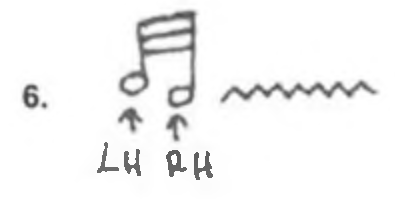 6.
LH RH